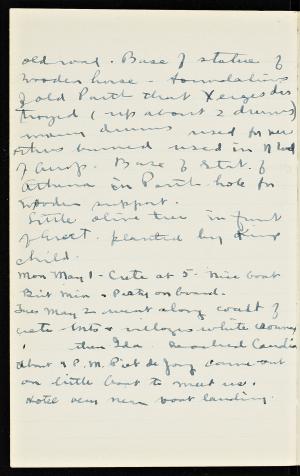 old road. Base of statue of
wooden horse - foundations
of old Parth that Xerxes des
troyed (up about 2 drums)
many drums used for new
others burned used in N wall
of Acrop. Base of Stat. of
Athena in Parth hole for
wooden support.
Little olive tree in front
of Erect. planted by King
child.
Mon May 1 - Crete at 5. Nice boat
Brit Min & Party on board.
Tues May 2 went along coast of
crete - Mts & villages white
then Ida. reached Candia
about 9 P.M. Piet de Jong came out
on little boat to meet us.
Hotel very near boat landing.